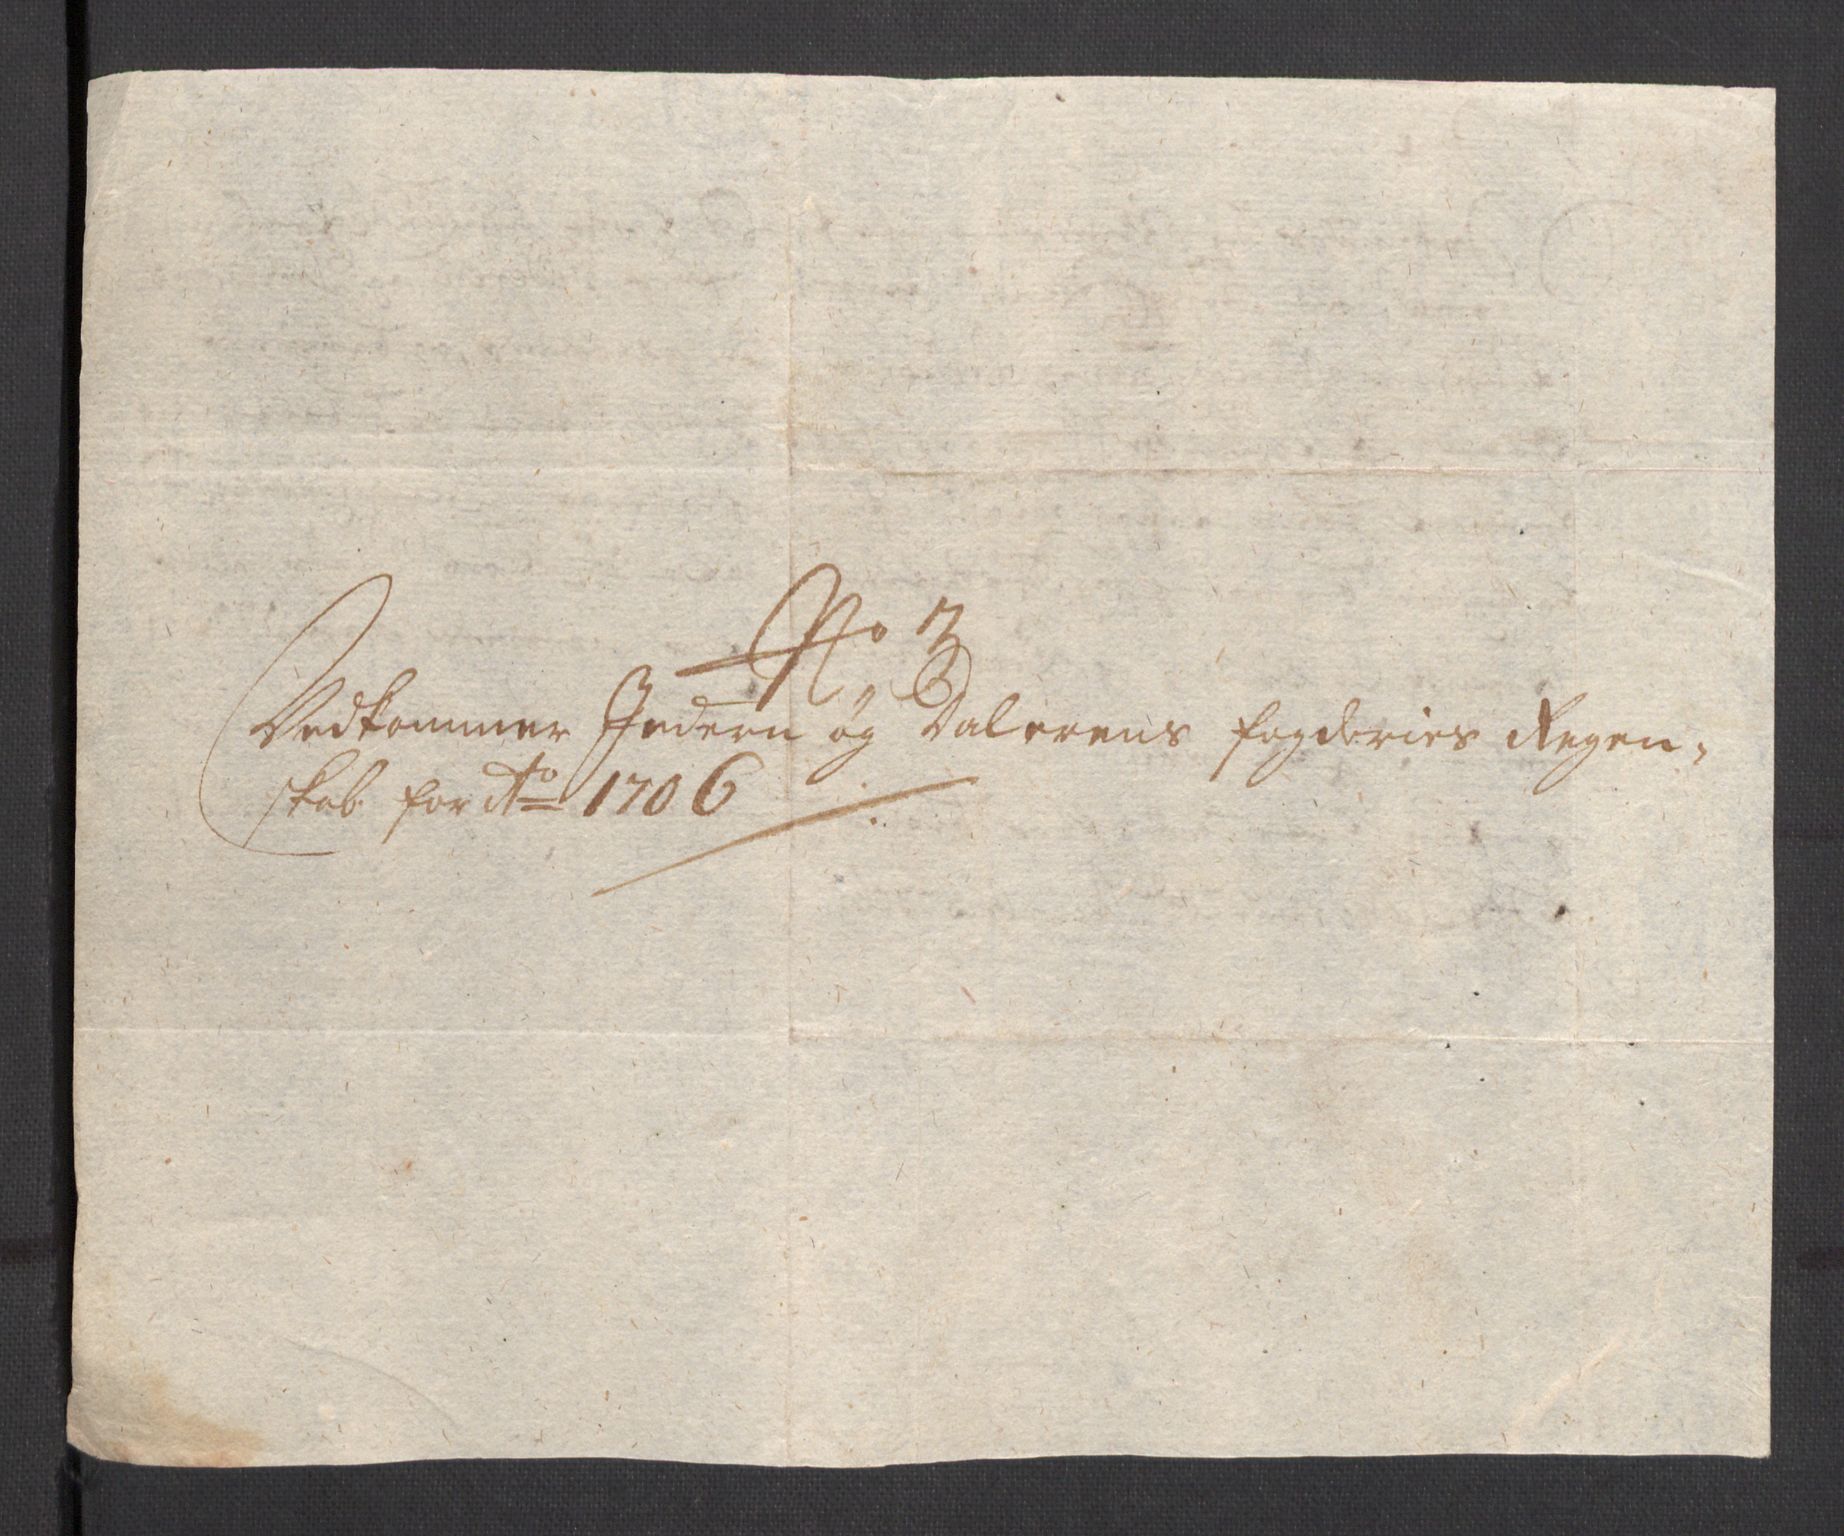 No 3
Vedkommer Jedern og Dalerens fogderies Regen-
skab for Ao 1706